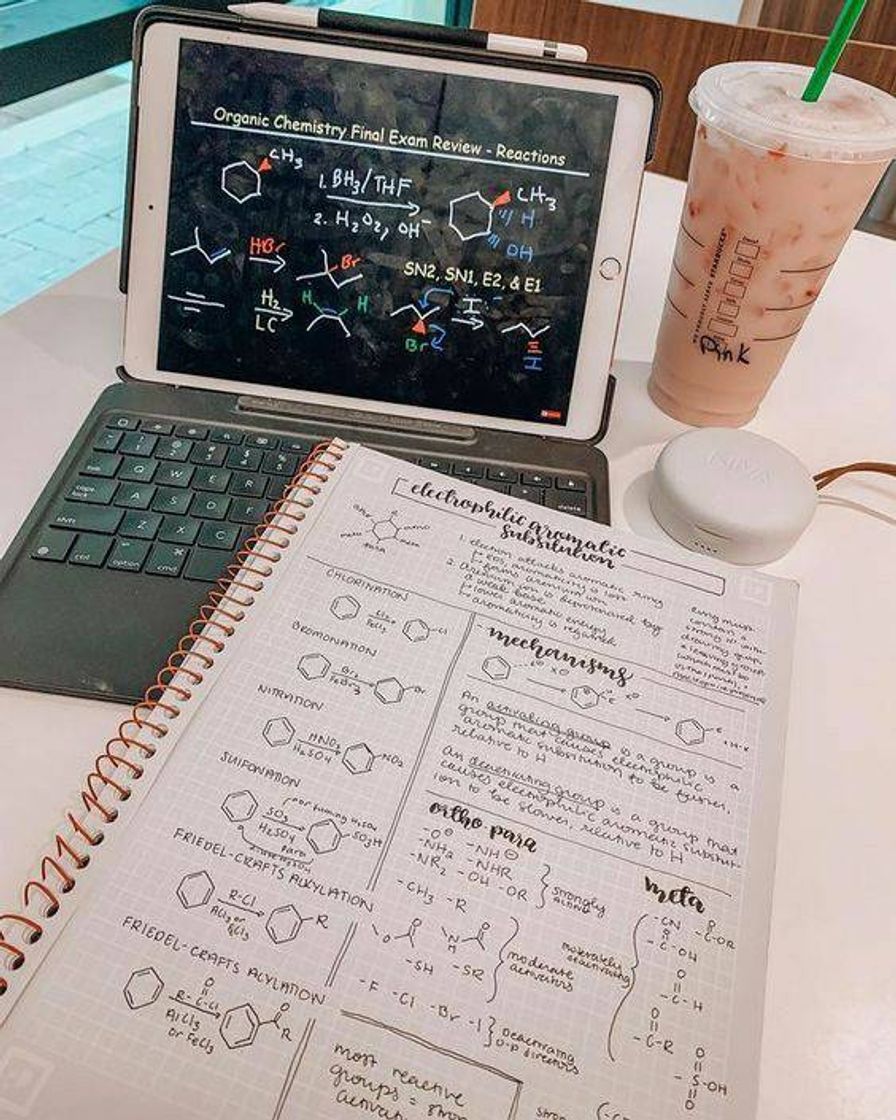 Organic Chemistry Final Exam Review - Reactions
CH3
1. BH3/THF
2. H2O2, OH-
CH3
H
OH
HBr
Br
SN2, SN1, E2, & E1
H2
LC
H
H
I:-
Br
I
Pink
electrophilic aromatic
substitution
1. electron attacks aromatic ring
2. arenium ion is deprotonated by
a weak base
lower aromatic energy
CHLORINATION
Cl2
FeCl3
Cl
BROMONATION
Br2
FeBr3
Br
NITRATION
HNO3
H2SO4
NO2
SULFONATION
SO3
H2SO4
SO3H
FRIEDEL-CRAFTS ALKYLATION
R-Cl
AlCl3 or
FeCl3
R
FRIEDEL-CRAFTS ACYLATION
O
R-C-Cl
AlCl3
or FeCl3
O
R
mechanisms
An activating group is a group
group that causes electrophilic
aromatic substitution to be faster,
relative to H
An deactivating group is a group that
causes electrophilic aromatic substitut-
ion to be slower, relative to H
ortho para
-O⊖ -NH⊖
-NH2 -NHR
-NR2 -OH -OR
strongly
-CH3 -R
-SH -SR
moderate
activators
-F -Cl -Br -I
deactivating
o-p directors
most reactive
groups = strong
meta
moderately
deactivating
-CN
O
-C-OR
O
-C-OH
O
-C-H
O
-C-R
O
-S-OH
O
strong